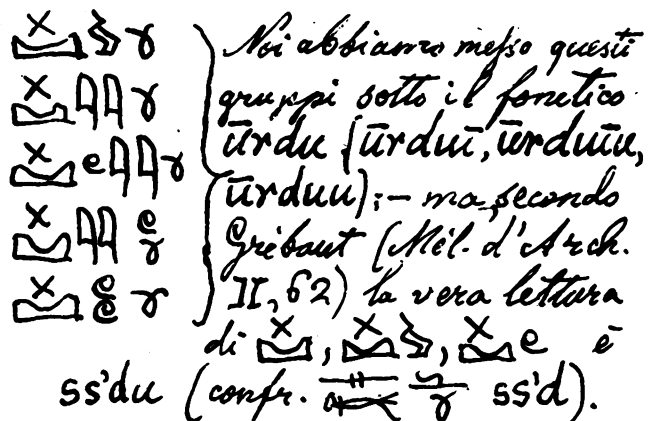 Noi abbiamo messo questi
gruppi sotto il fonetico
ūrdu (ūrduī, ūrduīu,
ūrduu); — ma, secondo
Grèbaut (Mél. d'Arch.
II, 62) la vera lettura
di , , è
ss'du (confr. ss'd).